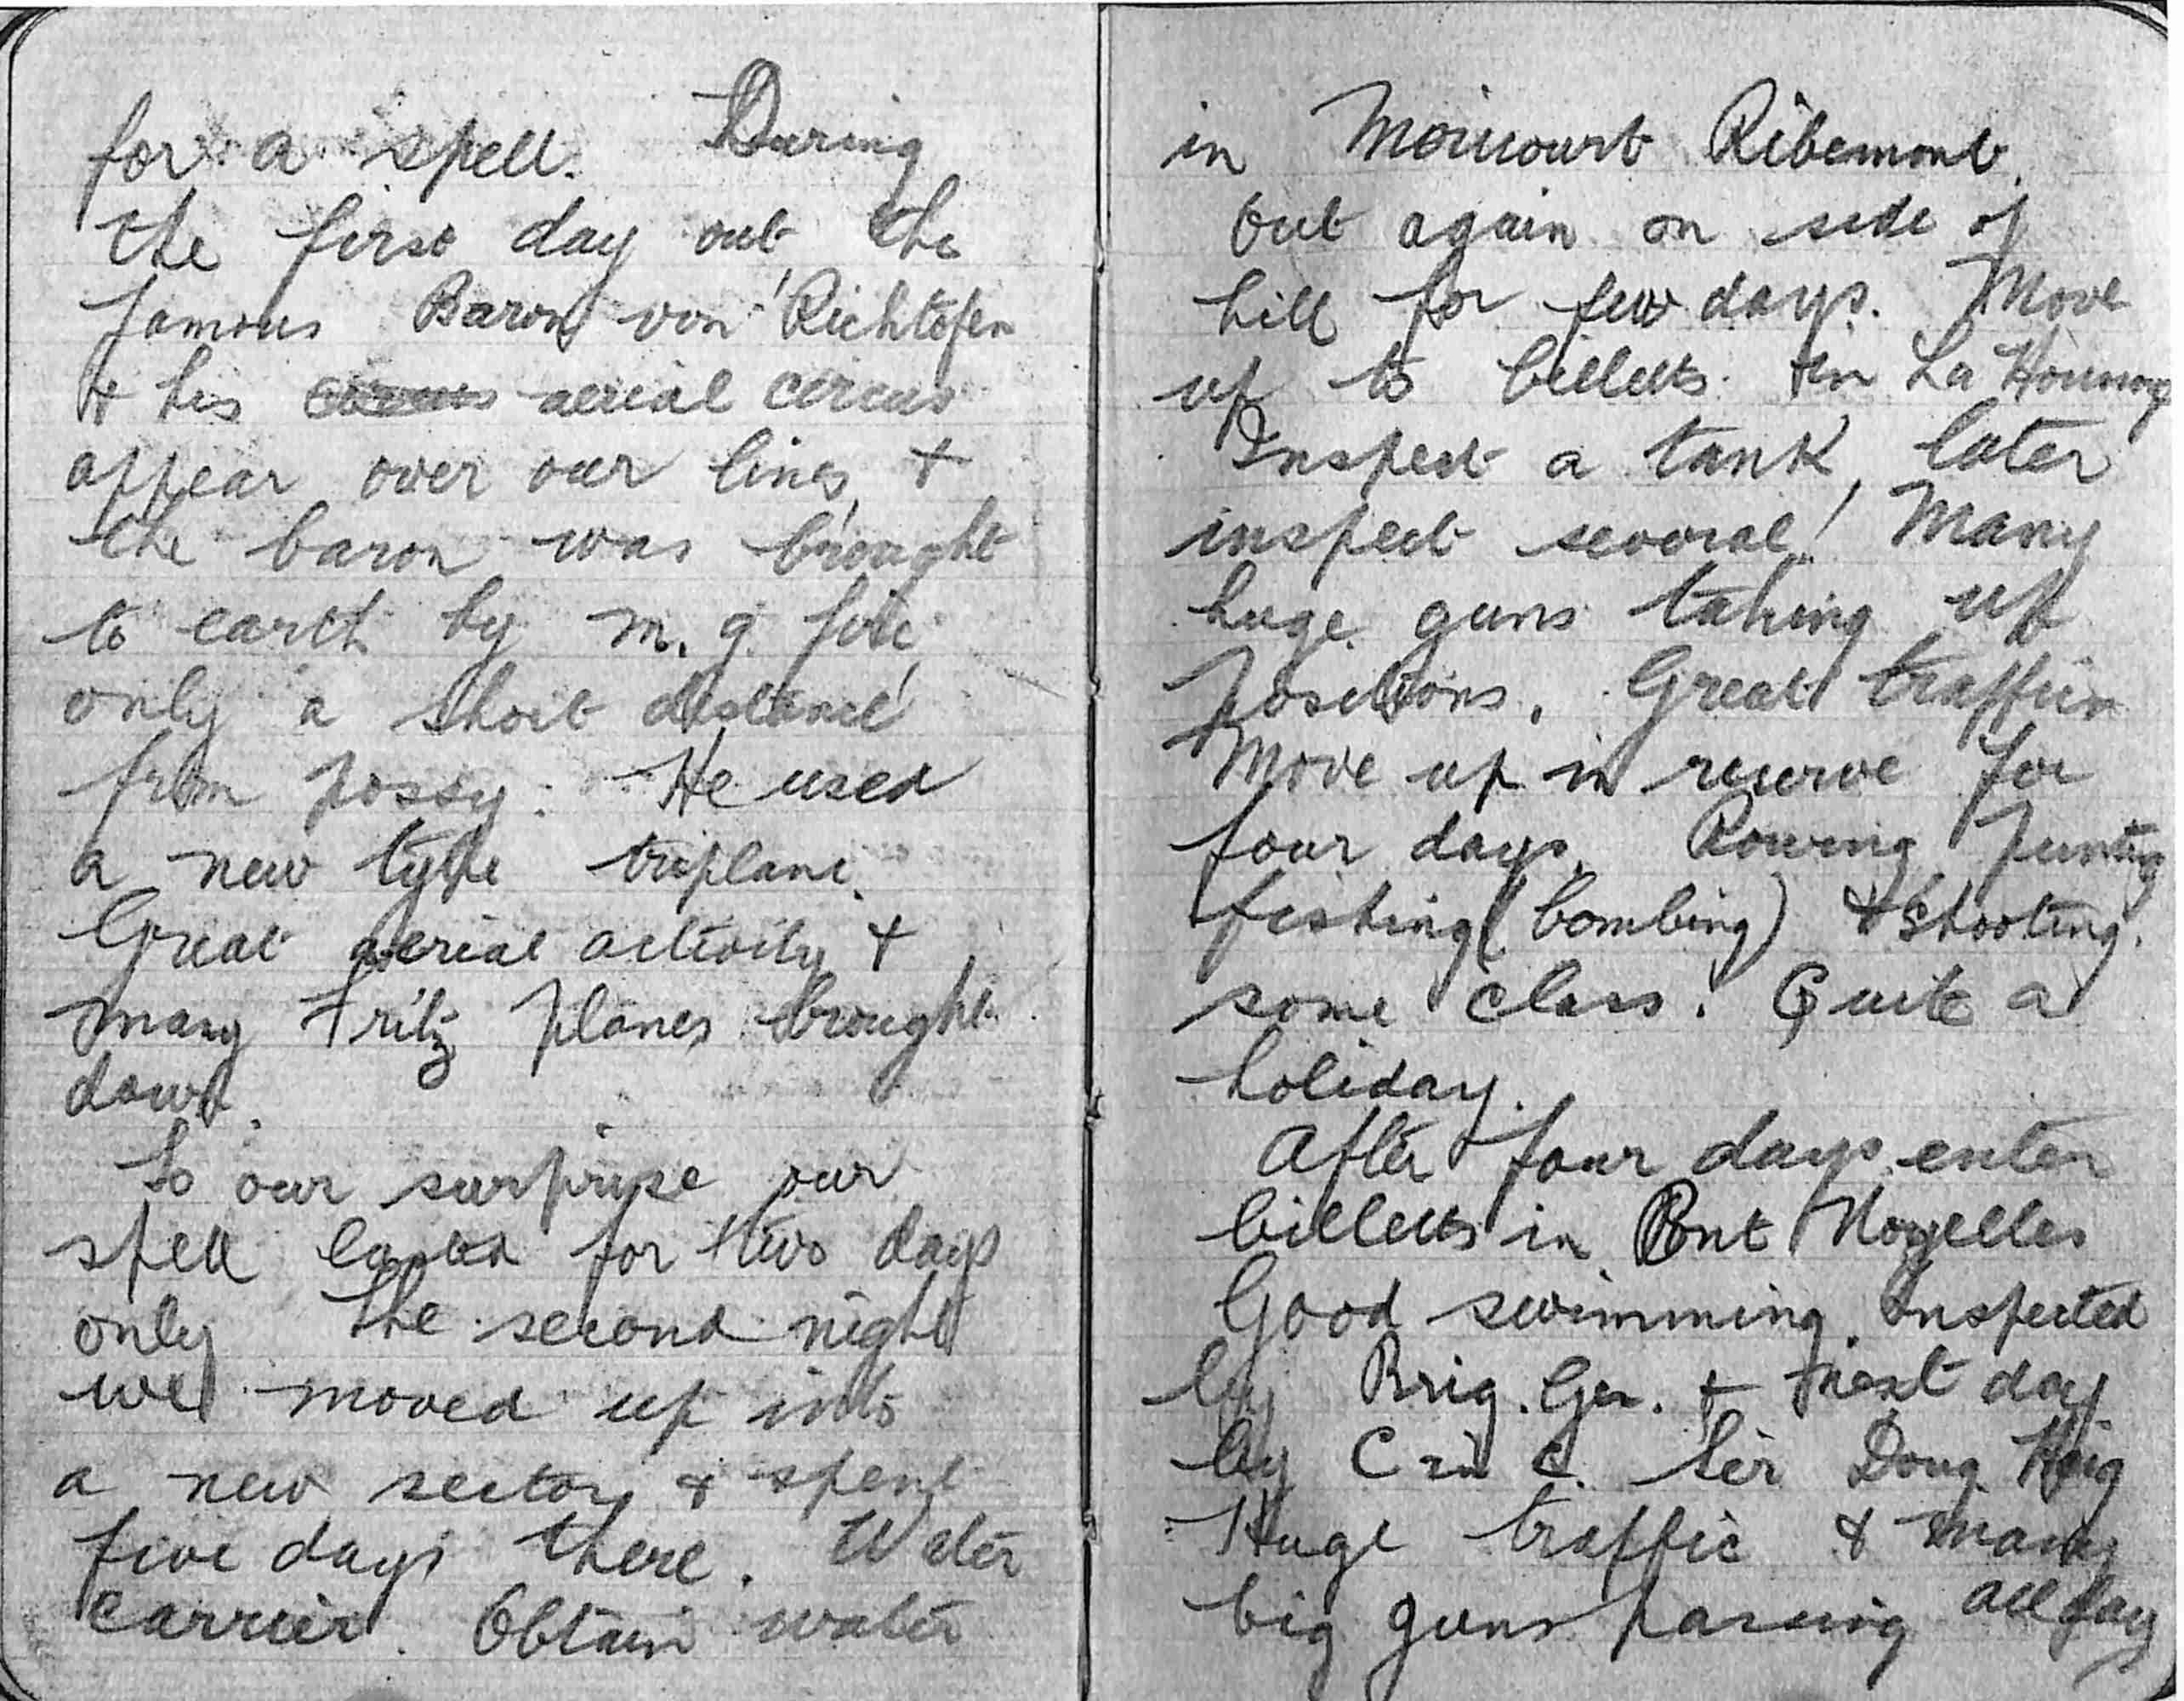 for a spell. During
the first day out the
famous Baron von Richtofen
+ his circus aerial circus
appear over our lines, +
the baron was brought
to earth by m. g. fire,
only a short distance
from possy. He used
a new type triplane.
Great aerial activity +
many Fritz planes brought
down.
To our surprise our
spell lasted for two days
only the second night
we moved up into
a new sector & spent
five days there. Water
carrier. Obtain water
in Moricourt Ribemont.
Out again on side of
hill for few days. Move
up to billetts in La Houssoye
Inspect a tank, later
inspect several! Many
huge guns taking up
positions. Great traffic
Move up in reserve for
four days. Rowing punting
fishing (bombing) & shooting.
some class. Quite a
holiday.
After four days enter
billetts in Pont Noyelles
Good swimming. Inspected
by Brig. Gen. + next day
by C in C. Sir Doug Haig
Huge traffic & many
big guns passing all day